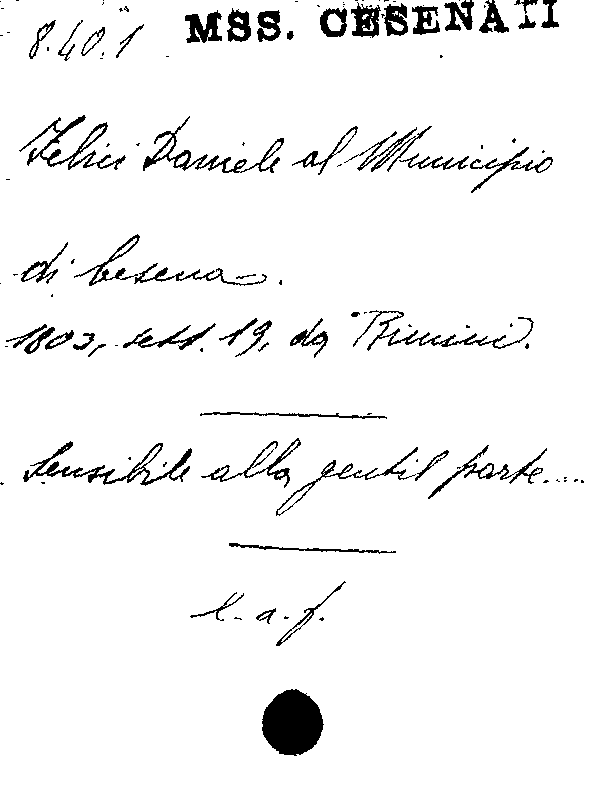 8.40.1 MSS. CESENATI
Felici Daniele al Municipio
di Cesena.
1803, sett. 19, da Rimini.
Sensibile alla gentil parte....
l. a. f.